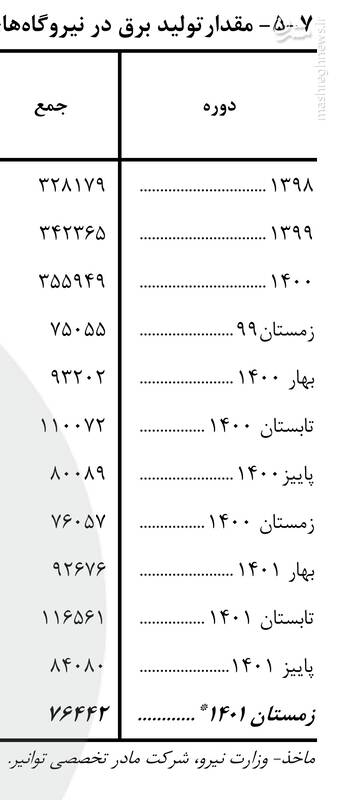 ۷-۵- مقدار تولید برق در نیروگاه‌ها
mashreghnews.ir
دوره جمع
۱۳۹۸ ................................ ۳۲۸۱۷۹
۱۳۹۹ ................................ ۳۴۲۳۶۵
۱۴۰۰ ................................ ۳۵۵۹۴۹
زمستان ۹۹ ........................ ۷۵۰۵۵
بهار ۱۴۰۰ ........................ ۹۳۲۰۲
تابستان ۱۴۰۰ ................ ۱۱۰۰۷۲
پاییز ۱۴۰۰ ........................ ۸۰۰۸۹
زمستان ۱۴۰۰ ................ ۷۶۰۵۷
بهار ۱۴۰۱ ........................ ۹۲۶۷۶
تابستان ۱۴۰۱ ................ ۱۱۶۵۶۱
پاییز ۱۴۰۱ ....................... ۸۴۰۸۰
زمستان ۱۴۰۱* ............ ۷۶۴۴۲
ماخذ- وزارت نیرو، شرکت مادر تخصصی توانیر.